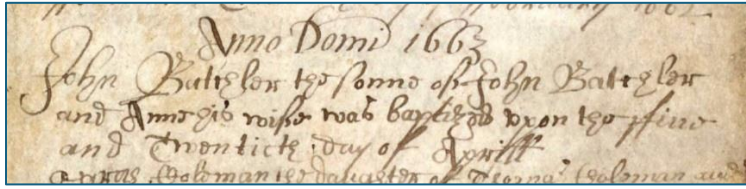 Anno Domi 1663
John Batchler the sonne of John Batchler
and Anne his wife was baptized upon the ffive
and Twentieth day of Aprill
the daughter of Thomas Holeman and